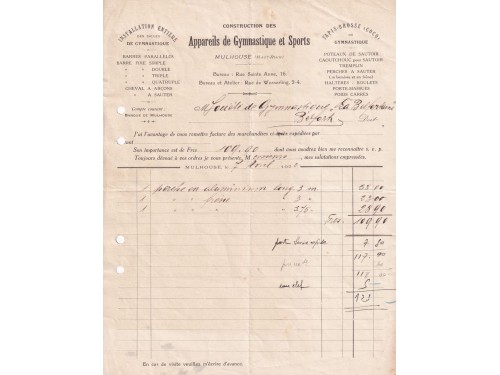 INSTALLATION ENTIÈRE
DES SALLES
DE GYMNASTIQUE
BARRES PARALLÈLES
BARRE FIXE SIMPLE
" " DOUBLE
" " TRIPLE
" " QUATRUPLE
CHEVAL A ARÇONS
" A SAUTER
Compte courant:
BANQUE DE MULHOUSE
CONSTRUCTION DES
Appareils de Gymnastique et Sports
MULHOUSE (HAUT-RHIN)
Bureau : Rue Sainte Anne, 16
Bureau et Atelier : Rue de Wesserling, 2-4.
TAPIS-BROSSE "COCO"
DE GYMNASTIQUE
POTEAUX DE SAUTOIR
CAOUTCHOUC pour SAUTOIR
TREMPLIN
PERCHES A SAUTER
HALTÈRES - BOULETS
PORTE-MASSUES
POIDS CARRÉS
M Société de Gymnastique, La Belfortaine
Belfort Doit:
J'ai l'avantage de vous remettre facture des marchandises et vous expédiées par
Son importance est de Frcs 109.90 dont vous voudrez bien me reconnaître s. v. p.
Toujours dévoué à vos ordres je vous présente, M essieurs, mes salutations empressées.
MULHOUSE le, 7 Avril
1 perche en aluminium long. 3 m.
1 " " "
1 " " " 28 90
Frs. 109.90
7 20
117.
117.
123
En cas de visite veuillez m'écrire d'avance.